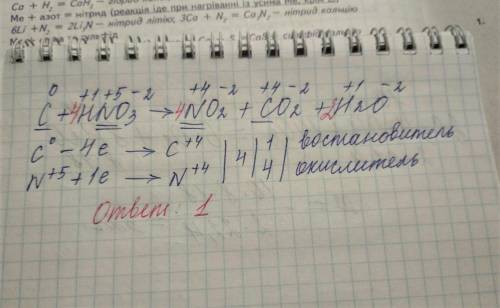 Ca + H₂ = CaH₂ –
Me + азот = нітрид (реакція іде при нагріванні із усіма
6Li + N₂ = 2Li₃N – нітрид літію, 3Ca + N₂ = Ca₃N₂ – нітрид кальцію
1.
0 +1 +5 -2 +4 -2 +4 -2 +1 -2
C + 4HNO₃ → 4NO₂ + CO₂ + 2H₂O
C⁰ - 4e → C⁺⁴ | 4 | 1 | востановитель
N⁺⁵ + 1e → N⁺⁴ | | 4 | окислитель
Ответ: 1